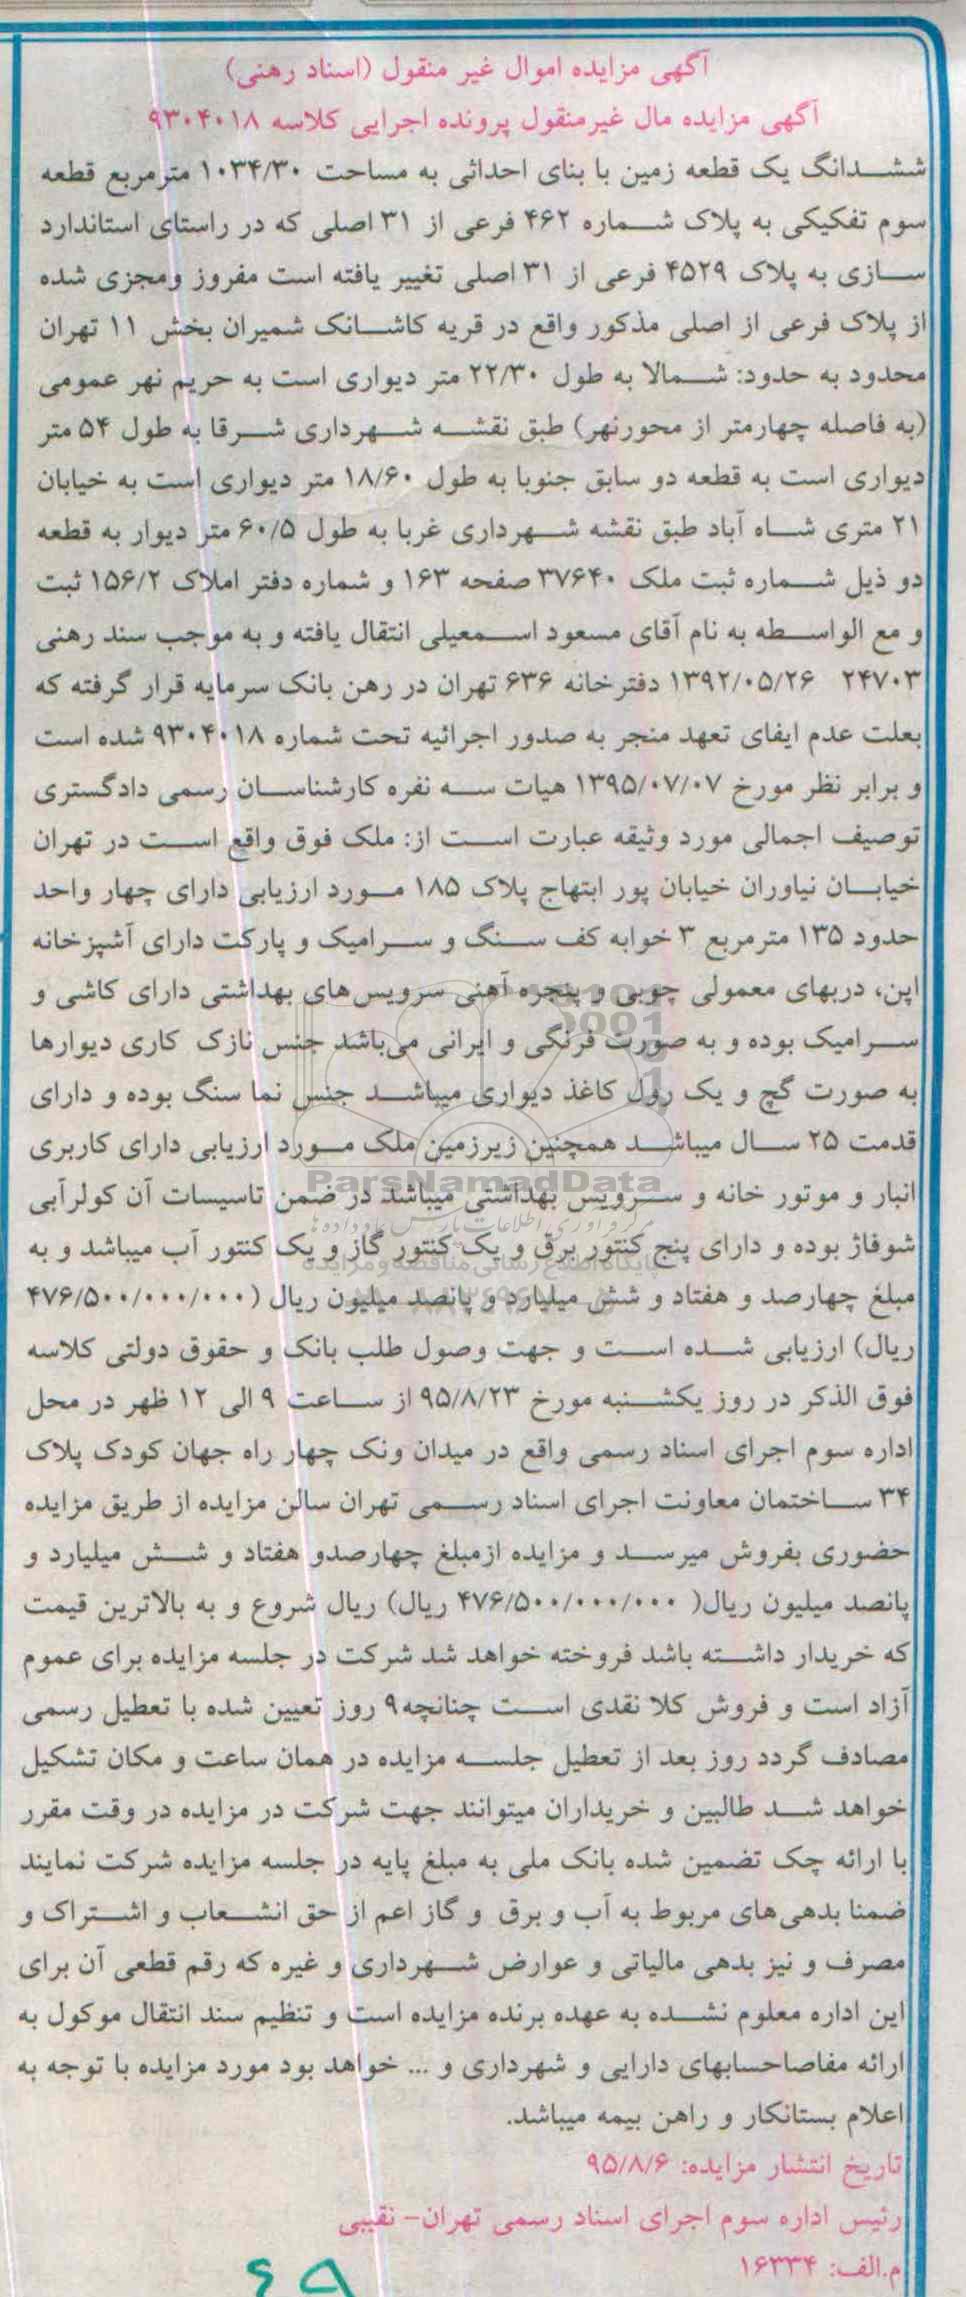 آگهی مزایده اموال غیر منقول (اسناد رهنی)
آگهی مزایده مال غیرمنقول پرونده اجرایی کلاسه ۹۳۰۴۰۱۸
ششدانگ یک قطعه زمین با بنای احداثی به مساحت ۱۰۳۴/۳۰ مترمربع قطعه
سوم تفکیکی به پلاک شماره ۴۶۲ فرعی از ۳۱ اصلی که در راستای استاندارد
سازی به پلاک ۴۵۲۹ فرعی از ۳۱ اصلی تغییر یافته است مفروز ومجزی شده
از پلاک فرعی از اصلی مذکور واقع در قریه کاشانک شمیران بخش ۱۱ تهران
محدود به حدود: شمالا به طول ۲۲/۳۰ متر دیواری است به حریم نهر عمومی
(به فاصله چهارمتر از محورنهر) طبق نقشه شهرداری شرقا به طول ۵۴ متر
دیواری است به قطعه دو سابق جنوبا به طول ۱۸/۶۰ متر دیواری است به خیابان
۲۱ متری شاه آباد طبق نقشه شهرداری غربا به طول ۶۰/۵ متر دیوار به قطعه
دو ذیل شماره ثبت ملک ۳۷۶۴۰ صفحه ۱۶۳ و شماره دفتر املاک ۱۵۶/۲ ثبت
و مع الواسطه به نام آقای مسعود اسمعیلی انتقال یافته و به موجب سند رهنی
۲۴۷۰۳ ۱۳۹۲/۰۵/۲۶ دفترخانه ۶۳۶ تهران در رهن بانک سرمایه قرار گرفته که
بعلت عدم ایفای تعهد منجر به صدور اجرائیه تحت شماره ۹۳۰۴۰۱۸ شده است
و برابر نظر مورخ ۱۳۹۵/۰۷/۰۷ هیات سه نفره کارشناسان رسمی دادگستری
توصیف اجمالی مورد وثیقه عبارت است از: ملک فوق واقع است در تهران
خیابان نیاوران خیابان پور ابتهاج پلاک ۱۸۵ مورد ارزیابی دارای چهار واحد
حدود ۱۳۵ مترمربع ۳ خوابه کف سنگ و سرامیک و پارکت دارای آشپزخانه
اپن، دربهای معمولی چوبی و پنجره آهنی سرویس‌های بهداشتی دارای کاشی و
سرامیک بوده و به صورت فرنگی و ایرانی می‌باشد جنس نازک کاری دیوارها
به صورت گچ و یک رول کاغذ دیواری میباشد جنس نما سنگ بوده و دارای
قدمت ۲۵ سال میباشد همچنین زیرزمین ملک مورد ارزیابی دارای کاربری
ParsNamadData
انبار و موتور خانه و سرویس بهداشتی میباشد در ضمن تاسیسات آن کولرآبی
شوفاژ بوده و دارای پنج کنتور برق و یک کنتور گاز و یک کنتور آب میباشد و به
پایگاه اطلاع رسانی مناقصه و مزایده
مبلغ چهارصد و هفتاد و شش میلیارد و پانصد میلیون ریال (۴۷۶/۵۰۰/۰۰۰/۰۰۰
ریال) ارزیابی شده است و جهت وصول طلب بانک و حقوق دولتی کلاسه
فوق الذکر در روز یکشنبه مورخ ۹۵/۸/۲۳ از ساعت ۹ الی ۱۲ ظهر در محل
اداره سوم اجرای اسناد رسمی واقع در میدان ونک چهار راه جهان کودک پلاک
۳۴ ساختمان معاونت اجرای اسناد رسمی تهران سالن مزایده از طریق مزایده
حضوری بفروش میرسد و مزایده ازمبلغ چهارصدو هفتاد و شش میلیارد و
پانصد میلیون ریال( ۴۷۶/۵۰۰/۰۰۰/۰۰۰ ریال) ریال شروع و به بالاترین قیمت
که خریدار داشته باشد فروخته خواهد شد شرکت در جلسه مزایده برای عموم
آزاد است و فروش کلا نقدی است چنانچه۹ روز تعیین شده با تعطیل رسمی
مصادف گردد روز بعد از تعطیل جلسه مزایده در همان ساعت و مکان تشکیل
خواهد شد طالبین و خریداران میتوانند جهت شرکت در مزایده در وقت مقرر
با ارائه چک تضمین شده بانک ملی به مبلغ پایه در جلسه مزایده شرکت نمایند
ضمنا بدهی‌های مربوط به آب و برق و گاز اعم از حق انشعاب و اشتراک و
مصرف و نیز بدهی مالیاتی و عوارض شهرداری و غیره که رقم قطعی آن برای
این اداره معلوم نشده به عهده برنده مزایده است و تنظیم سند انتقال موکول به
ارائه مفاصاحسابهای دارایی و شهرداری و ... خواهد بود مورد مزایده با توجه به
اعلام بستانکار و راهن بیمه میباشد.
تاریخ انتشار مزایده: ۹۵/۸/۶
رئیس اداره سوم اجرای اسناد رسمی تهران- نقیبی
م.الف: ۱۶۳۳۴
۶۹